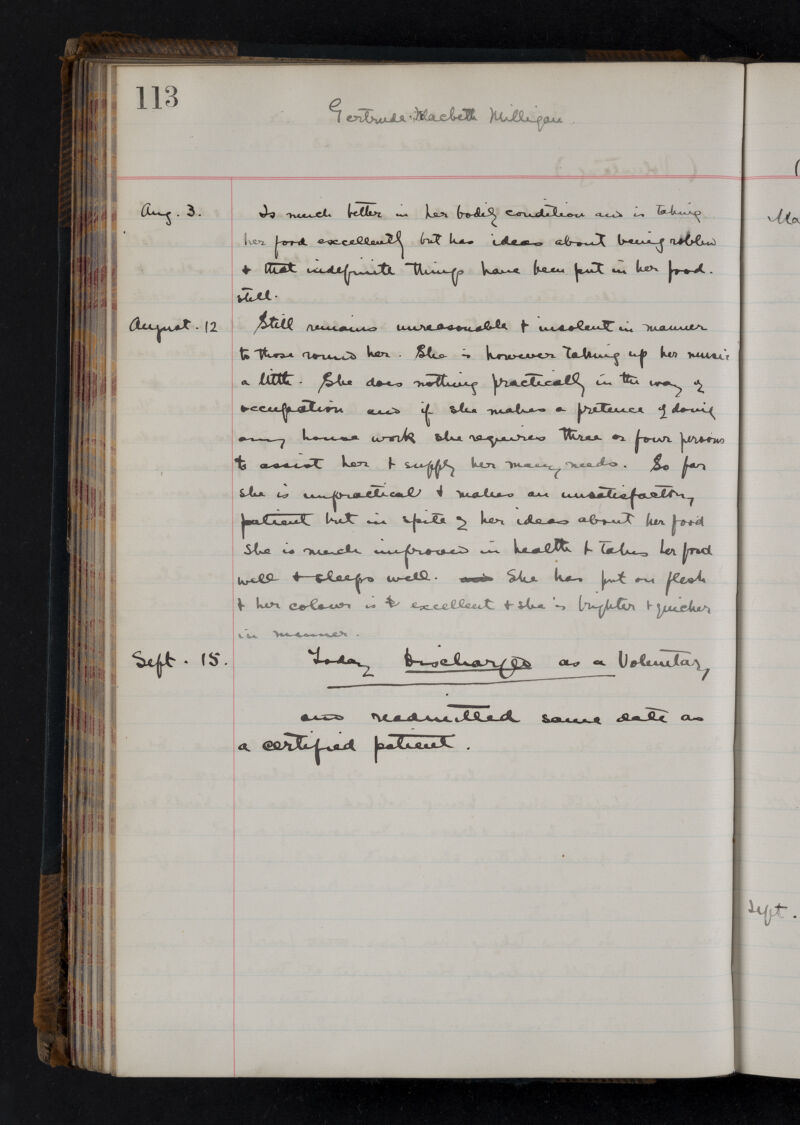 113
Gertrude Macbeth Milligan.
Aug. 3. Is much better in her bodily condition and is taking
her food excellently but has ideas about being robbed
& that indefinite things have been put in her food.
still.
August. 12 Still remains unreasonable & insolent in manner
to those round her. She is however taking up her music
a little. She does nothing practically in the way of
occupation and if she makes a pretence of doing
any house work she requires three or four persons
to assist her & supply her many needs. So far
she is unpractical & makes an unsatisfactory
patient but in spite of her ideas about her food
she is much improved in health & takes her food
well & sleeps well. She has put on flesh
& her colour is excellent & she is brighter & quicker
in manner.
Sept. 15. Today Discharged as a Voluntary
and readmitted same date as
a certified patient.
Ma
Sept.